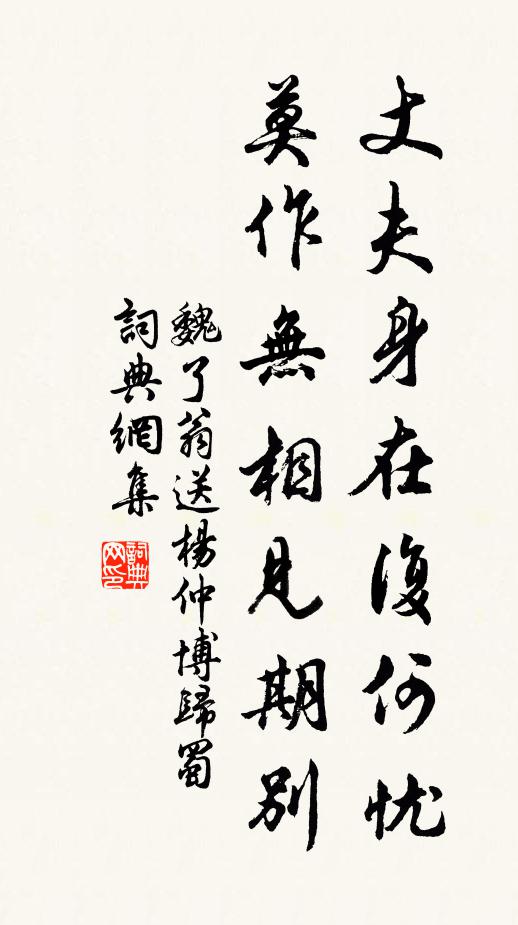 丈夫身在復何忧
莫作無相見期别
魏了翁送楊仲博歸蜀
詞典網集
詞典网印